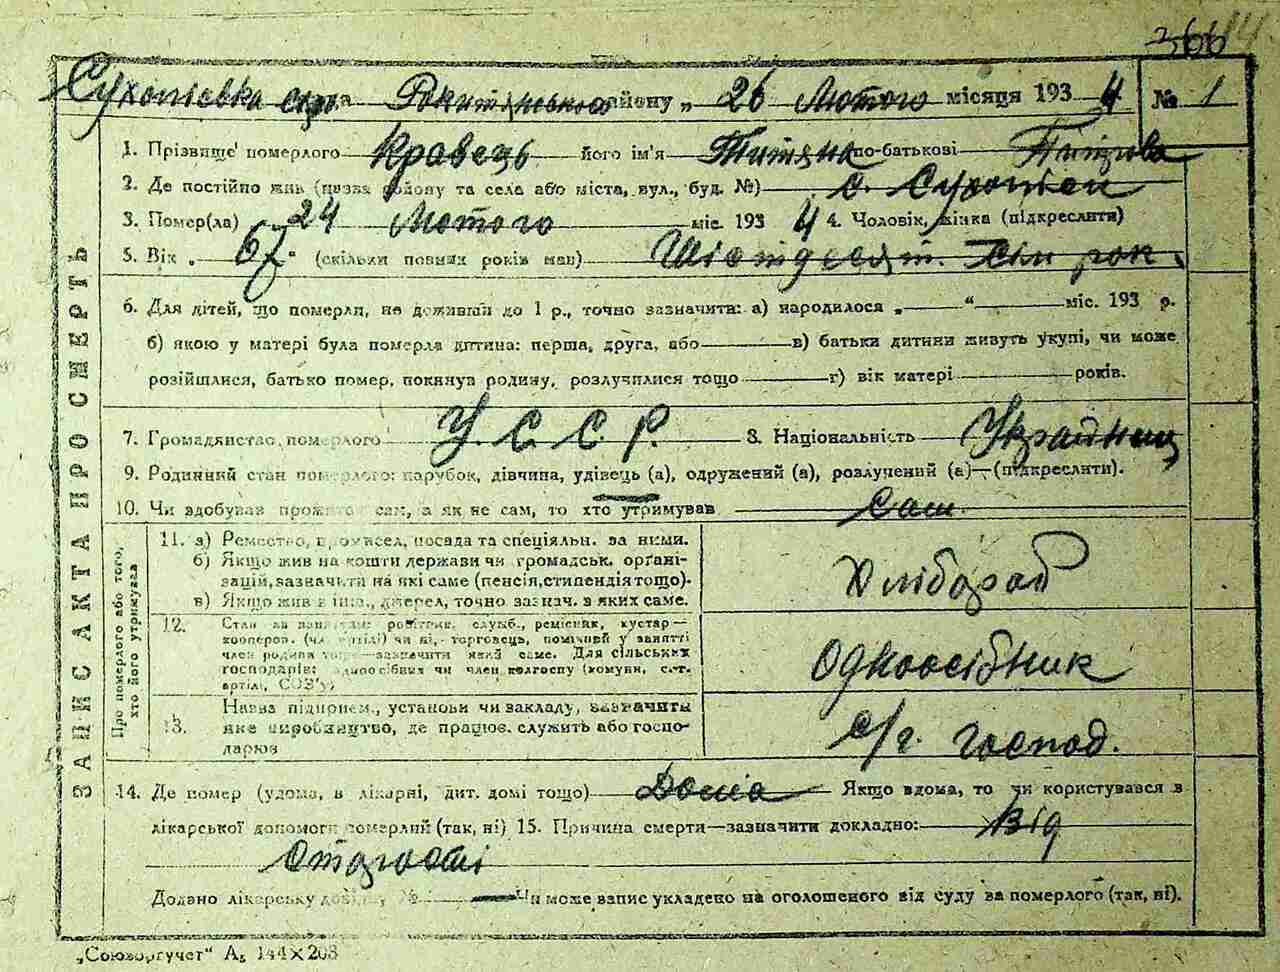 366
Сухоліська с/рада Рокитянського району „ 26 Лютого місяця 1934 № 1
1. Прізвище померлого Кравець його ім'я Титяна по-батькові
2. Де постійно жив (назва району та села або міста, вул., буд. №) с. Сухоліси
3. Помер(ла) 24 Лютого міс. 1934 4. Чоловік, жінка (підкреслити)
5. Вік „ 67 " (скільки повних років мав) Шістдесят. сім рок.
6. Для дітей, що померли, не доживши до 1 р., точно зазначити: а) народилося „ “ міс. 193 р.
б) якою у матері була померла дитина: перша, друга, або в) батьки дитини живуть укупі, чи може
розійшлися, батько помер, покинув родину, розлучилися тощо г) вік матері років.
7. Громадянство померлого У.С.С.Р. 8. Національність Україниц
9. Родинний стан померлого: парубок, дівчина, удівець (а), одружений (а), розлучений (а)—(підкреслити).
10. Чи здобував прожиток сам, а як не сам, то хто утримував Сам
ЗАПИС АКТА ПРО СМЕРТЬ
Про померлого або того, хто його утримував
11. а) Ремество, промисел, посада та спеціяльн. за ними.
б) Якщо жив на кошти держави чи громадськ. органі-
зацій, зазначити на які саме (пенсія, стипендія тощо).
в) Якщо жив з інш., джерел, точно зазнач. з яких саме.
Хлібороб
12. Стан за занятям: робітник, служб., ремісник, кустар—
кооперов. (чл. артілі) чи ні, торговець, помічний у занятті
член родини тощо—зазначити який саме. Для сільських
господарів: одноосібник чи член колгоспу (комуни, с.-г.
артілі, СОЗ'у)
Одноосібник
13. Назва підприєм., установи чи закладу, зазначити
яке виробництво, де працює, служить або госпо-
дарює
с/г. господ.
14. Де помер (удома, в лікарні, дит. домі тощо) Дома Якщо вдома, то чи користувався з
лікарської допомоги померлий (так, ні) 15. Причина смерти—зазначити докладно: Від
старости
Додано лікарську довідку № Чи може запис укладено на оголошеного від суду за померлого (так, ні).
„Союзоргучет“ А₅ 144×203